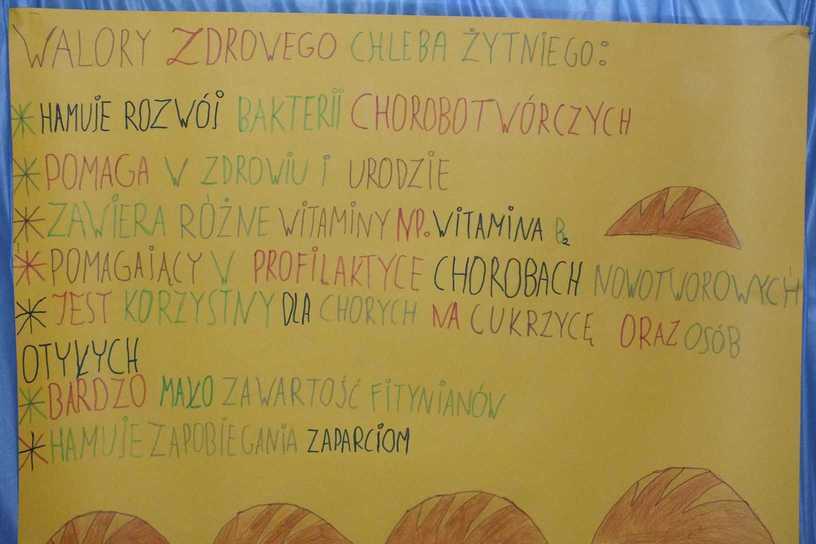 WALORY ZDROWEGO CHLEBA ŻYTNIEGO:
* HAMUJE ROZWÓJ BAKTERII CHOROBOTWÓRCZYCH
* POMAGA W ZDROWIU I URODZIE
* ZAWIERA RÓŻNE WITAMINY NP. WITAMINA B2
* POMAGAJĄCY W PROFILAKTYCE CHOROBACH NOWOTWOROWYCH
* JEST KORZYSTNY DLA CHORYCH NA CUKRZYCĘ ORAZ OSÓB
OTYŁYCH
* BARDZO MAŁO ZAWARTOŚĆ FITYNIANÓW
* HAMUJE ZAPOBIEGANIA ZAPARCIOM